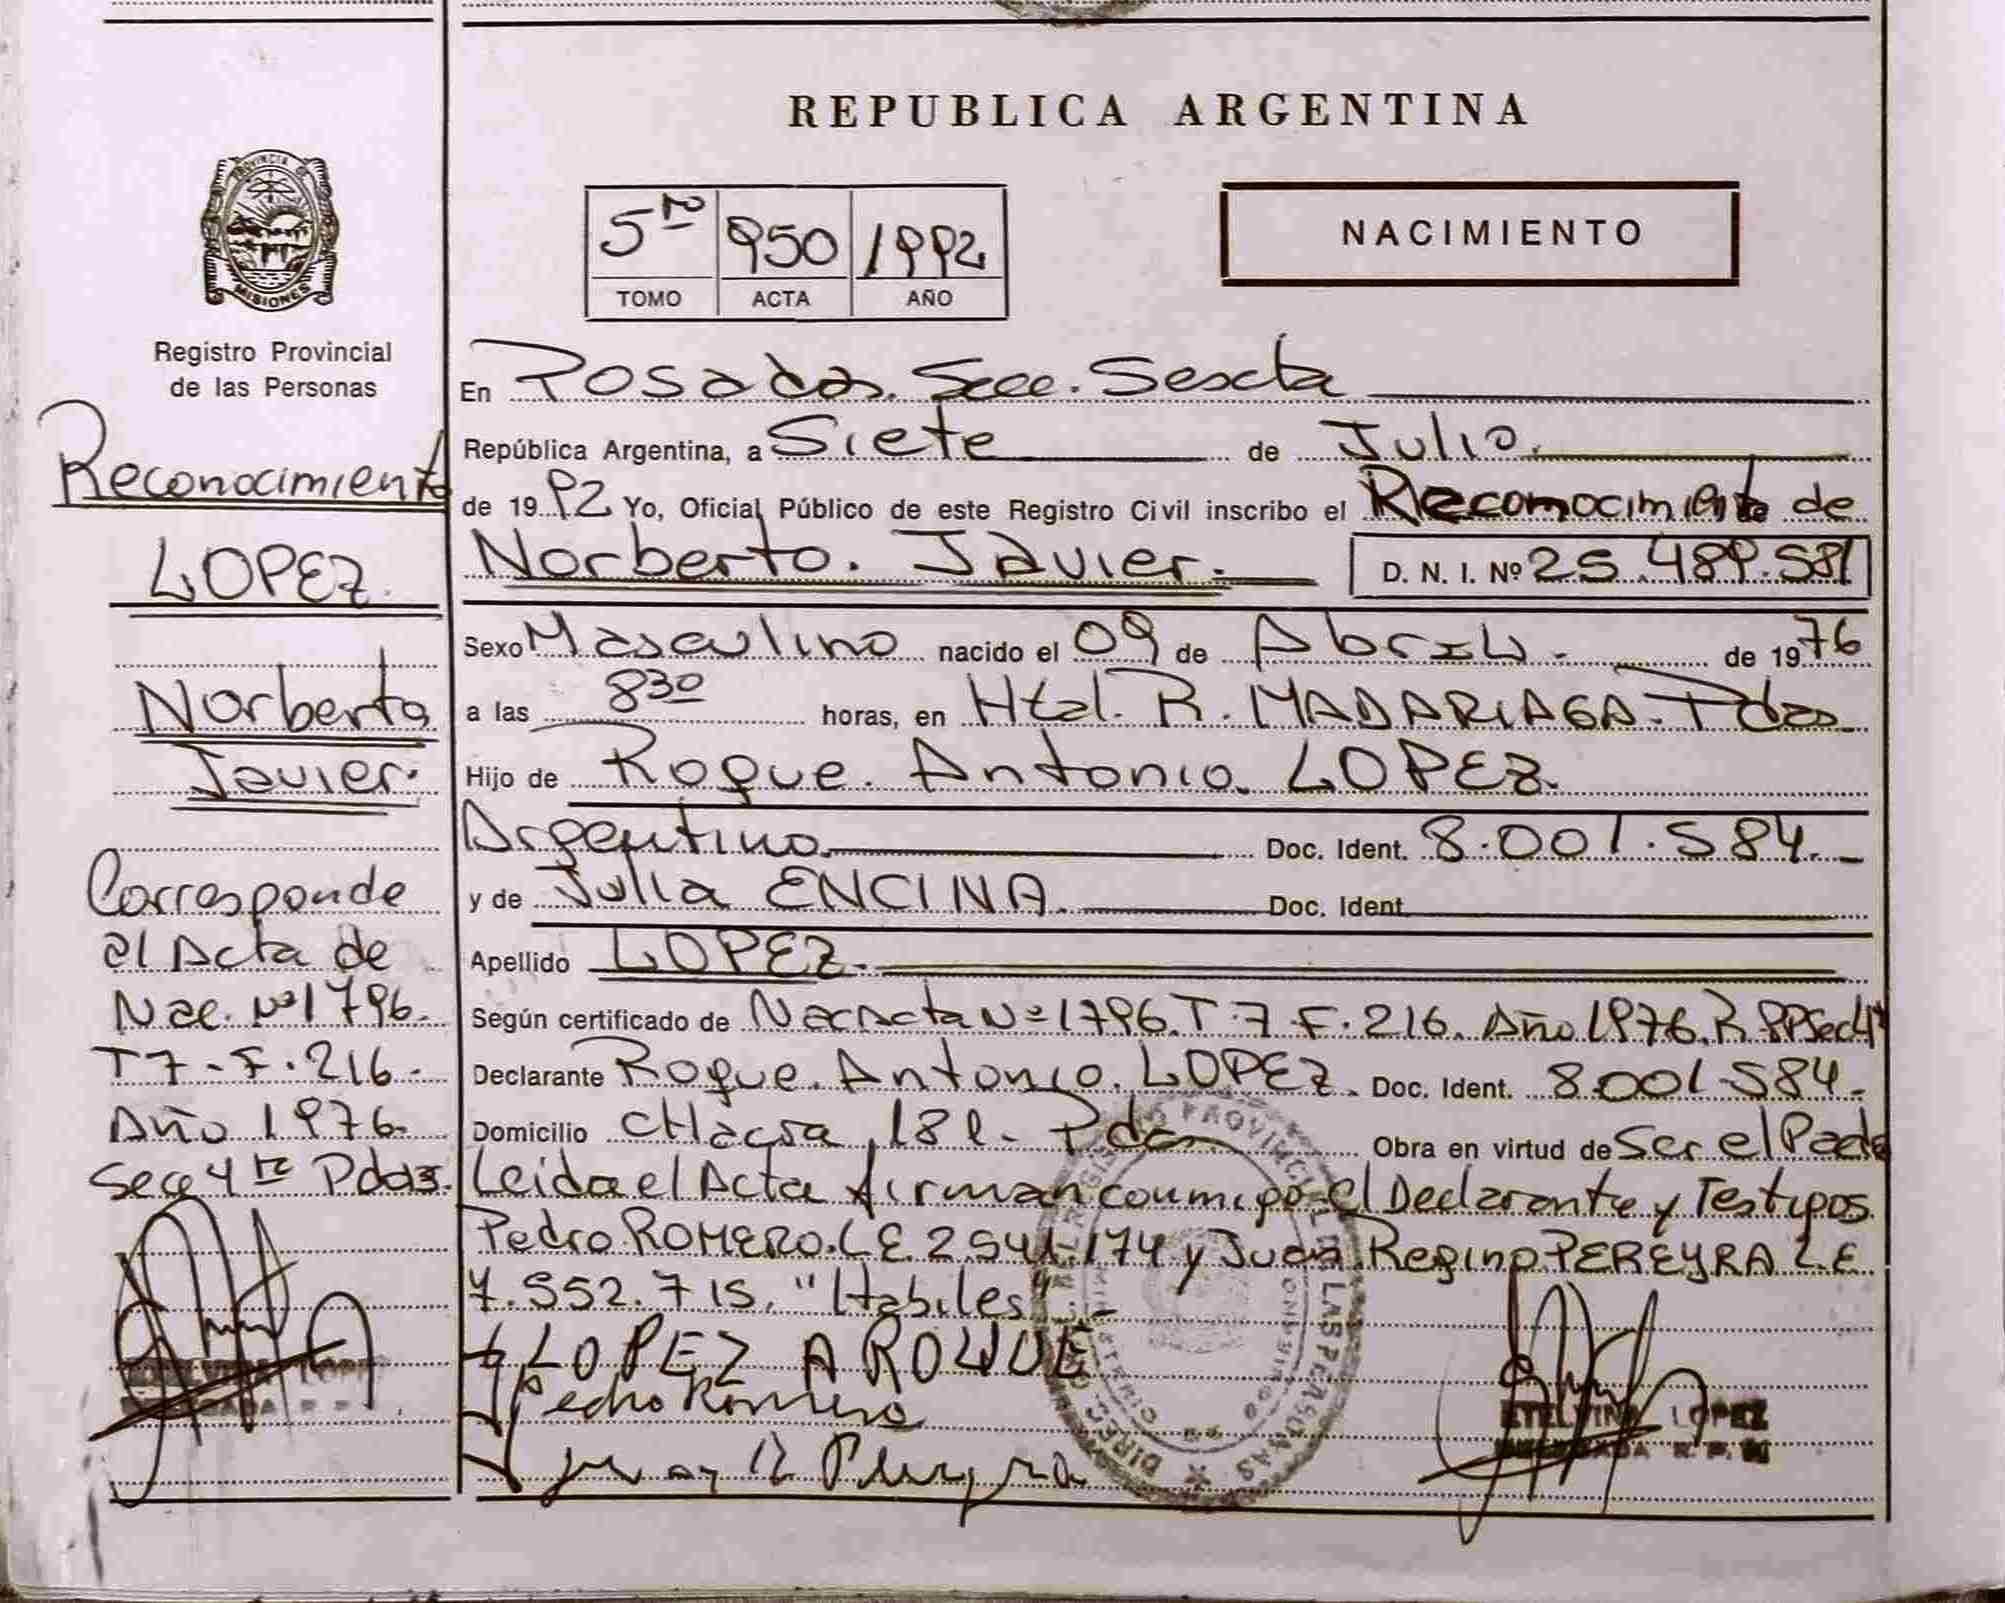 REPUBLICA ARGENTINA
PROVINCIA DE
MISIONES
Registro Provincial
de las Personas
5ro 950 1992
TOMO ACTA AÑO
NACIMIENTO
Reconocimiento
LOPEZ.
Norberto
Javier.
Corresponde
al Acta de
Nac. Nº 1796.
T 7 - F. 216.
Año 1976.
Secc 4ta Pdas.
En Posadas. Secc. Sexta
República Argentina, a Siete de Julio.
de 1992 Yo, Oficial Público de este Registro Civil inscribo el Reconocimiento de
Norberto. Javier. D. N. I. Nº 25.489.581
Sexo Masculino nacido el 09 de Abril. de 1976
a las 830 horas, en Htal. R. MADARIAGA - Pdas
Hijo de Roque. Antonio. LOPEZ.
Argentino. Doc. Ident. 8.001.584.
y de Julia ENCINA. Doc. Ident.
Apellido LOPEZ.
Según certificado de Nac Acta Nº 1796. T. 7 F. 216. Año 1976. R.PP Sec 4ª
Declarante Roque. Antonio. LOPEZ. Doc. Ident. 8.001.584.
Domicilio CHacra 181. Pdas. Obra en virtud de Ser el Padre
Leida el Acta firman conmigo el Declarante y Testigos
Pedro ROMERO. L E. 2.541.174 y Juan Regino PEREYRA L.E
7.552.715. "Habiles" .-
LOPEZ A ROQUE
Pedro Romero
Juan R Pereyra
ETELVINA LOPEZ
R. P. P.
LAS PERSONAS